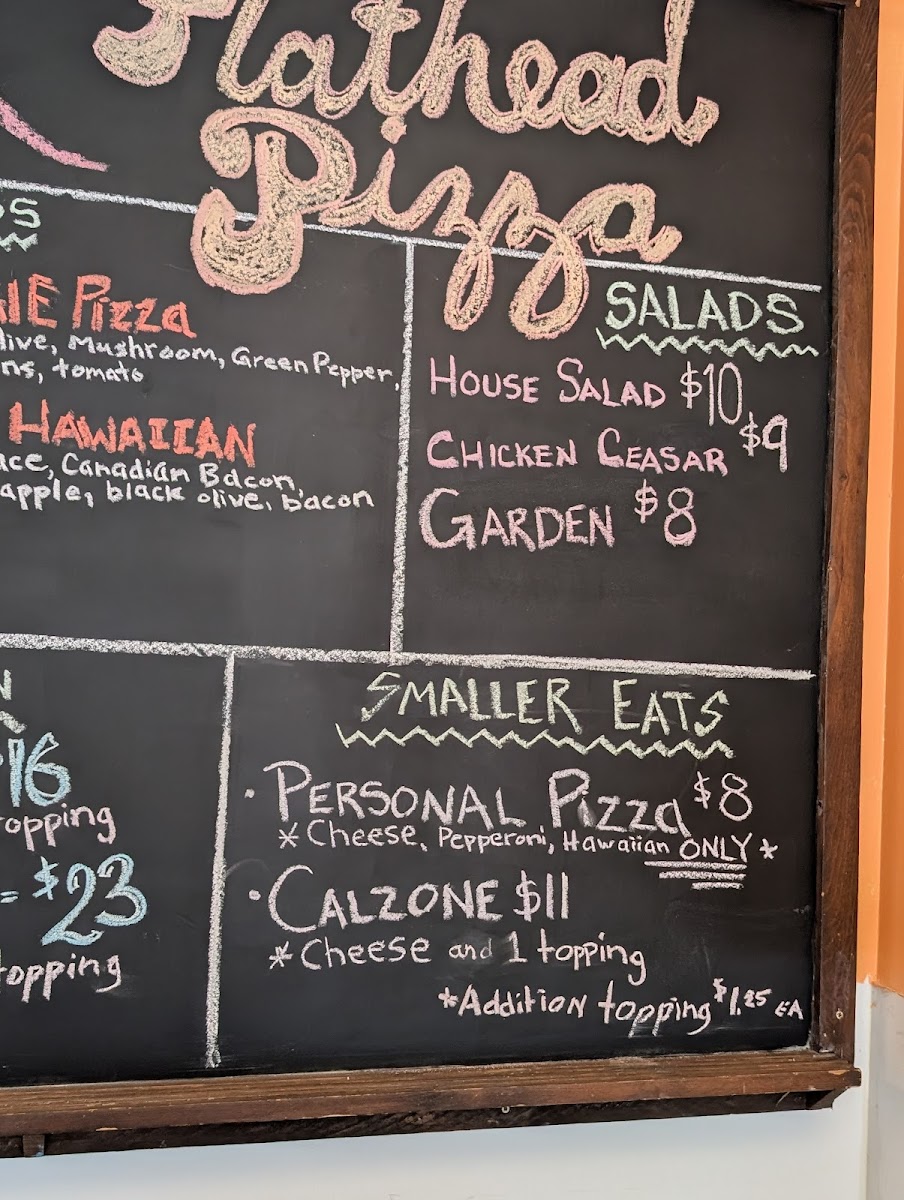 Flathead
Pizza
Pizza
Mushroom, Green Pepper,
tomato
HAWAIIAN
Canadian Bacon,
black olive, bacon
SALADS
HOUSE SALAD $10
CHICKEN CEASAR $9
GARDEN $8
16
$23
SMALLER EATS
· PERSONAL Pizza $8
* Cheese, Pepperoni, Hawaiian ONLY *
· CALZONE $11
* Cheese and 1 topping
* Addition topping $1.25 EA